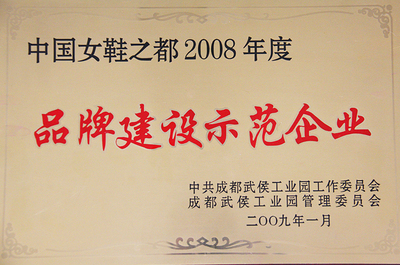 中国女鞋之都2008年度
品牌建设示范企业
中共成都武侯工业园工作委员会
成都武侯工业园管理委员会
二〇〇九年一月